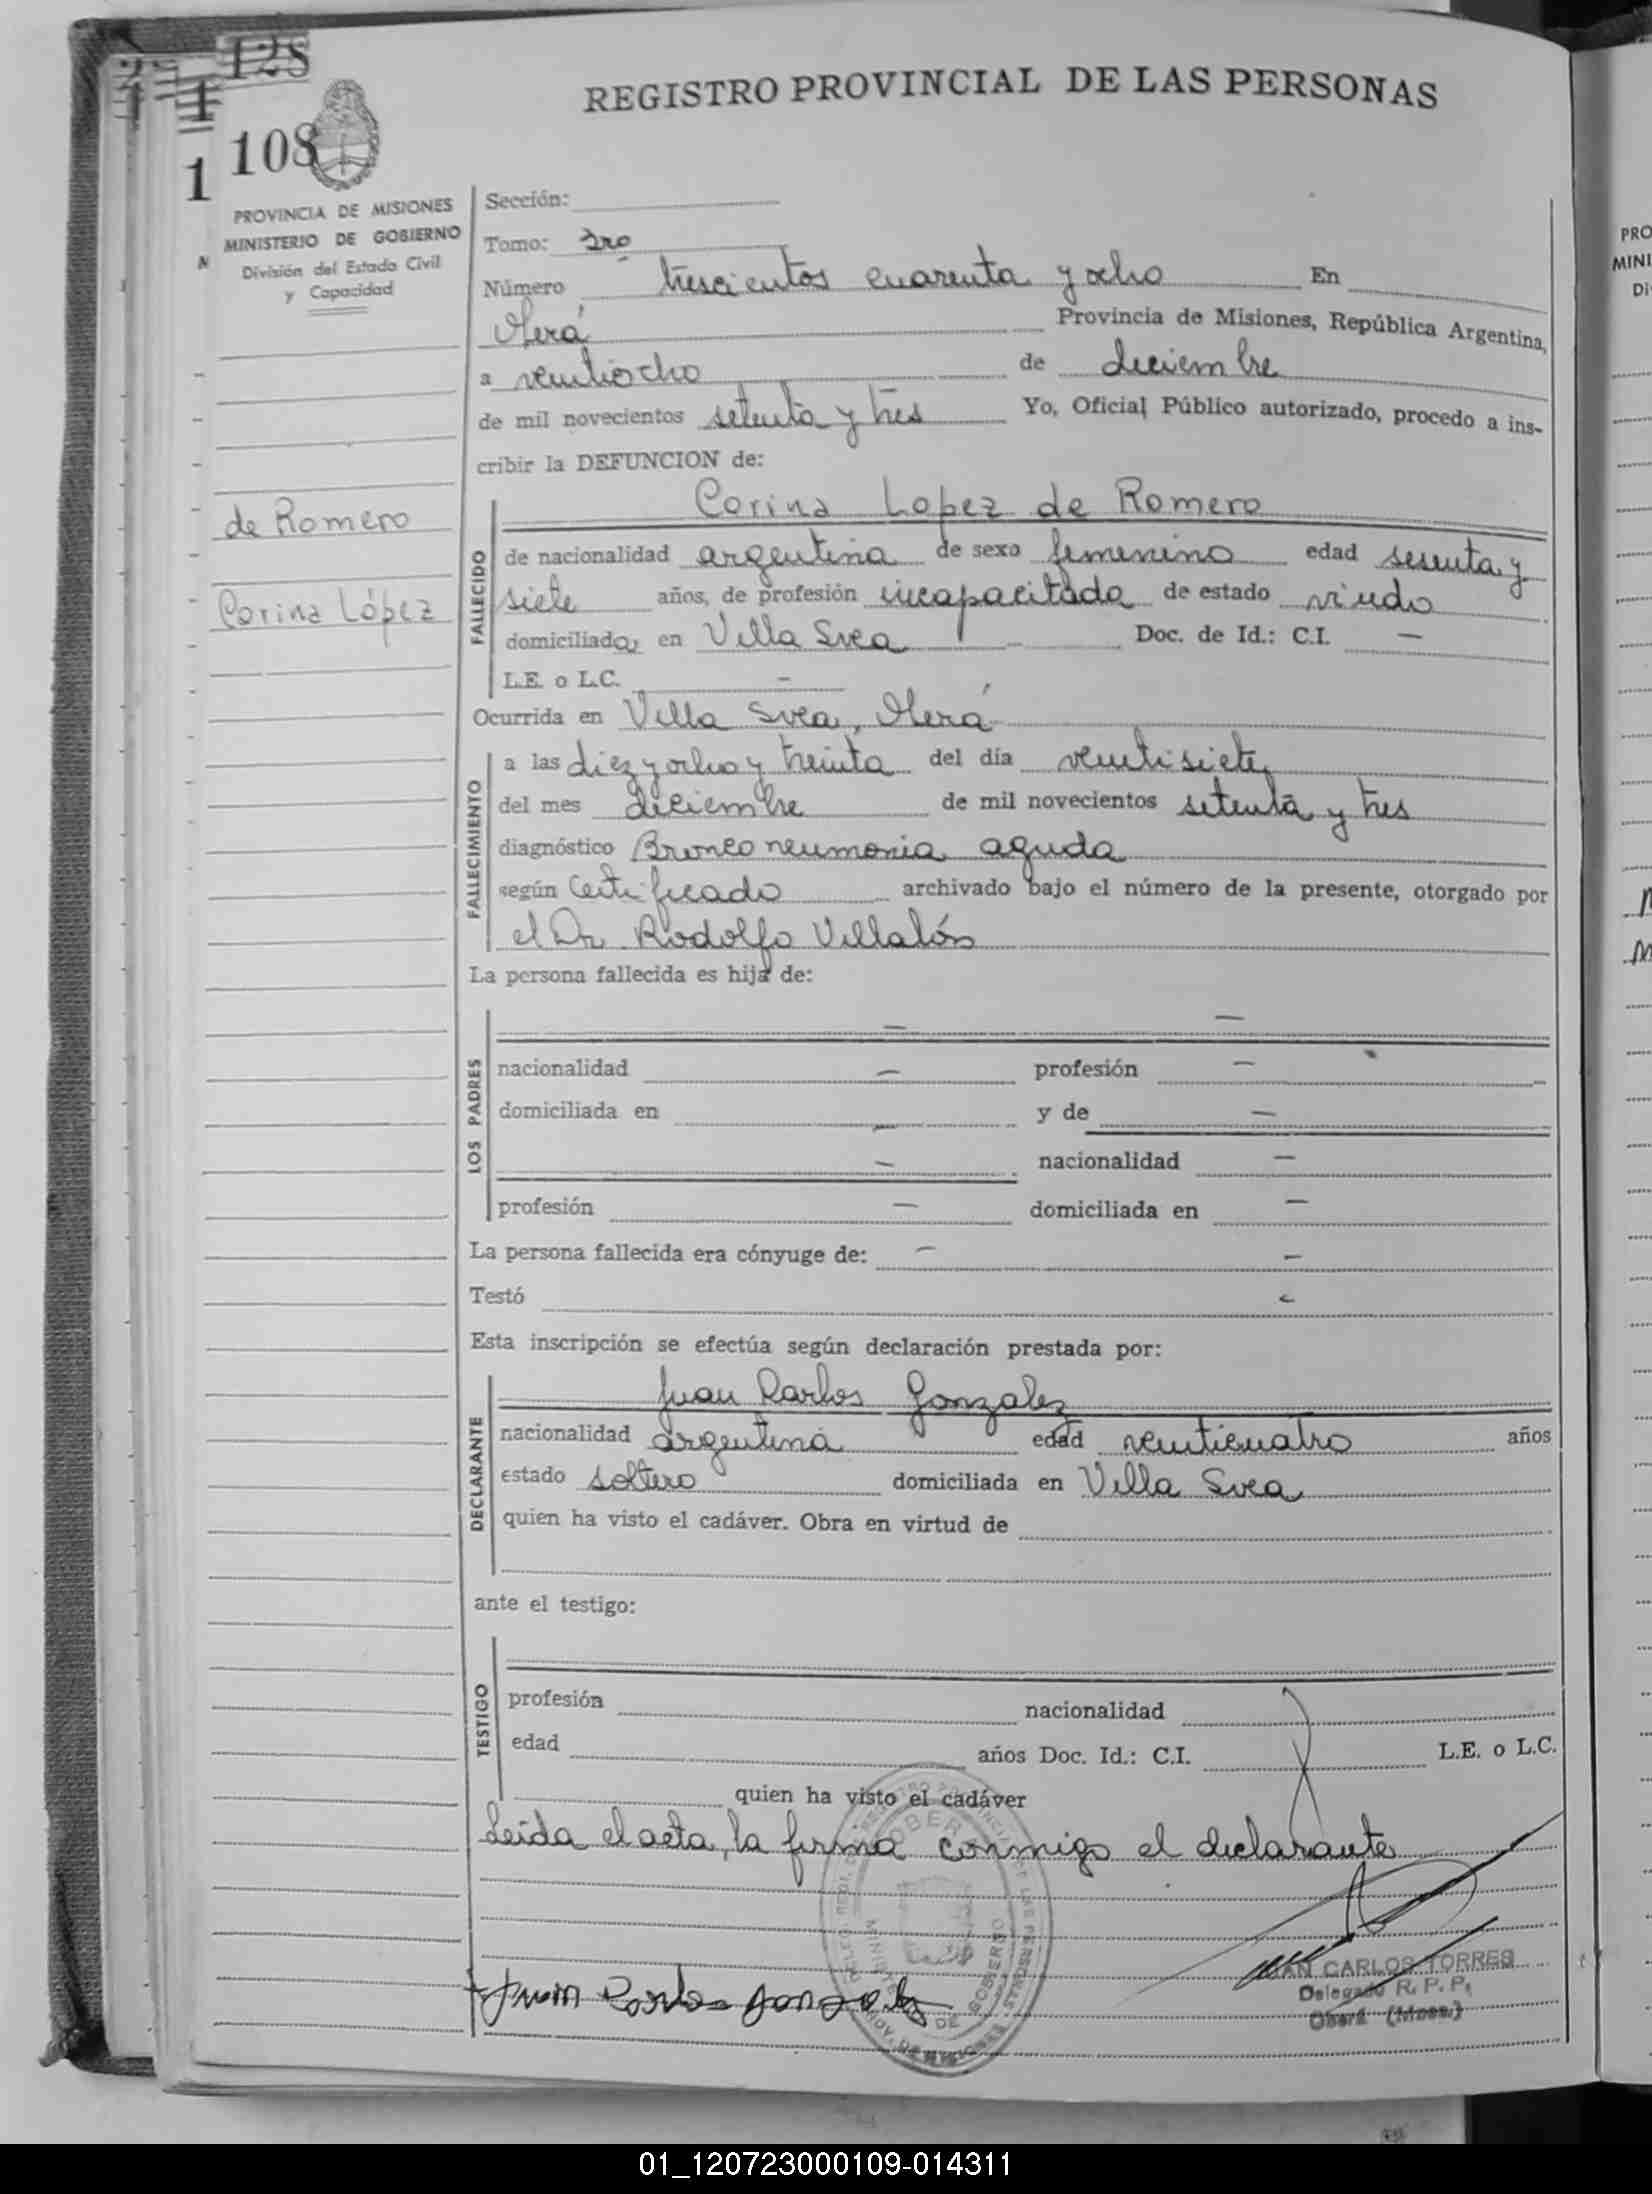 128
1
1 108
REGISTRO PROVINCIAL DE LAS PERSONAS
PROVINCIA DE MISIONES
MINISTERIO DE GOBIERNO
División del Estado Civil
y Capacidad
de Romero
Corina López
Sección:
Tomo: 3ro
Número trescientos cuarenta y ocho En
Oberá Provincia de Misiones, República Argentina,
a veintiocho de diciembre
de mil novecientos setenta y tres Yo, Oficial Público autorizado, procedo a ins-
cribir la DEFUNCION de:
FALLECIDO
Corina Lopez de Romero
de nacionalidad argentina de sexo femenino edad sesenta y
siete años, de profesión incapacitada de estado viudo
domiciliada, en Villa Svea Doc. de Id.: C.I. —
L.E. o L.C. -
Ocurrida en Villa Svea, Oberá
FALLECIMIENTO
a las diez y ocho y treinta del día veintisiete
del mes diciembre de mil novecientos setenta y tres
diagnóstico Bronconeumonia aguda
según Certificado archivado bajo el número de la presente, otorgado por
el Dr. Rodolfo Villalón
La persona fallecida es hija de:
LOS PADRES
— —
nacionalidad — profesión —
domiciliada en — y de —
— nacionalidad —
profesión — domiciliada en —
La persona fallecida era cónyuge de: — —
Testó -
Esta inscripción se efectúa según declaración prestada por:
DECLARANTE
Juan Carlos Gonzalez
nacionalidad argentina edad veinticuatro años
estado soltero domiciliada en Villa Svea
quien ha visto el cadáver. Obra en virtud de
ante el testigo:
TESTIGO
profesión nacionalidad
edad años Doc. Id.: C.I. L.E. o L.C.
quien ha visto el cadáver
Leída el acta, la firma conmigo el declarante
Juan Carlos Gonzalez
JUAN CARLOS TORRES
Delegado R. P. P.
Oberá (Mnes.)
PRO
MINI
Di
01_120723000109-014311